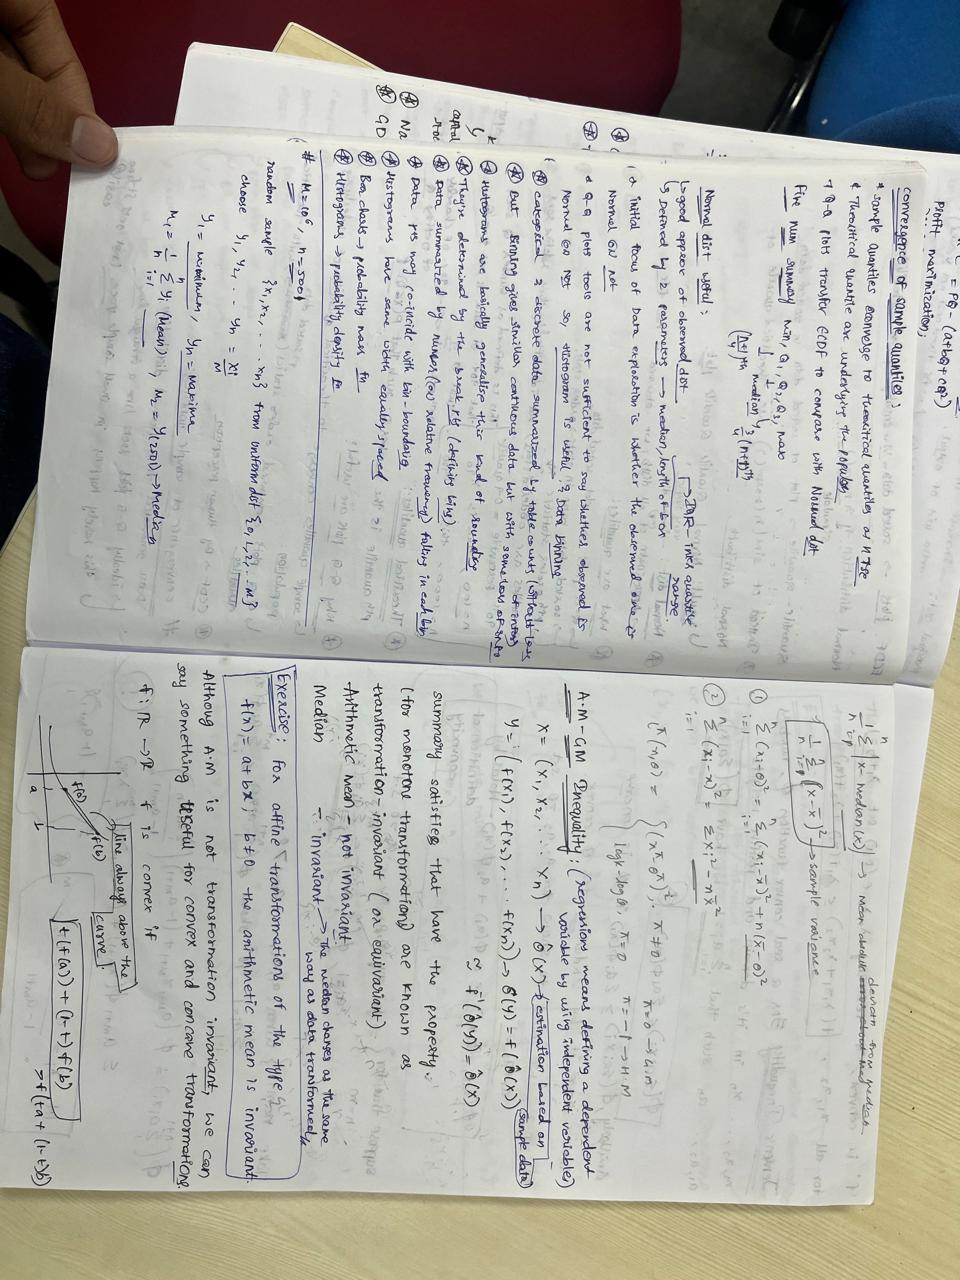 = PQ - (a+bQ+cQ²)
Profit maximization;
convergence of sample quantiles;
* sample quantiles converge to theoritical quantiles as n ↑se
* Theoritical quantile are underlying the populsn
* Q-Q plots transfer ECDF to compare with Normal dst
Five num summary min, Q₁, Q₂, Q₃, max
median
(n+1)/4 th
3/4 (n+1)th
Normal dist useful:
↳ good approx of observed dist
↳ Defined by 2 parameters → median, length of box
→ IQR - inter quantile range
* initial focus of Data exploration is whether the observed one is
Normal or not
* Q-Q plots tools are not sufficient to say whether observed is
Normal or Not so, Histogram is useful & Data Binning
* categorical & discrete data summarized by table counts (without loss
of infor)
* But Binning gives similar continuous data but with some loss of info
* Histograms are basically generalise this kind of rounding
* They're determined by the break pts (defining bins)
* Data summarized by number (or relative frequency) falling in each bin
* Data pts may co-incide with bin-boundaries
* Histograms have same width equally spaced
* Bar charts → probability mass fn
* Histograms → probability density fn
# M = 10⁶, n = 5001
random sample {x₁, x₂, .... xₙ} from uniform dist {0, 1, 2, ... M}
choose y₁, y₂, ... yₙ = xi/M
y₁ = minimum, yₙ = maxima
M₁ = 1/n Σ i=1 n yi (Mean), M₂ = y(2501) → Median
capital
Na
GD
1/n Σ |x - median(x)| → mean absolute deviation from median
1/n Σ (x - x̄)² → sample variance
① Σ i=1 n (xi - θ)² = Σ i=1 n (xi - x̄)² + n(x̄ - θ)²
② Σ i=1 n (xi - x)² = Σxi² - nx̄²
(x^π - θ^π)², π ≠ 0
π = 0 → G.M
logx - logθ, π = 0
π = -1 → H.M
A.M - GM Inequality: (regressions means defining a dependent
variable by using independent variable)
X = (x₁, x₂, .... xₙ) → θ̂(X) → estimation based on
(sample data)
Y = (f(x₁), f(x₂), ... f(xₙ)) → θ̂(Y) = f(θ̂(X))
≅ f⁻¹(θ̂(Y)) = θ̂(X)
summary satisfies that have the property.
(for monotone transformation) are known as
transformation-invariant (or equivariant)
Arithmetic mean - not invariant
Median - invariant → The median changes as the same
way as data transformed
Exercise: For affine transformations of the type
f(x) = a+bx; b≠0 the arithmetic mean is invariant.
Althoug A.M is not transformation invariant, we can
say something useful for convex and concave transformations.
f: ℝ → ℝ f is convex if
line always above the
curve
f(a)
f(b)
a
b
t(f(a)) + (1-t) f(b)
> f(ta + (1-t)b)